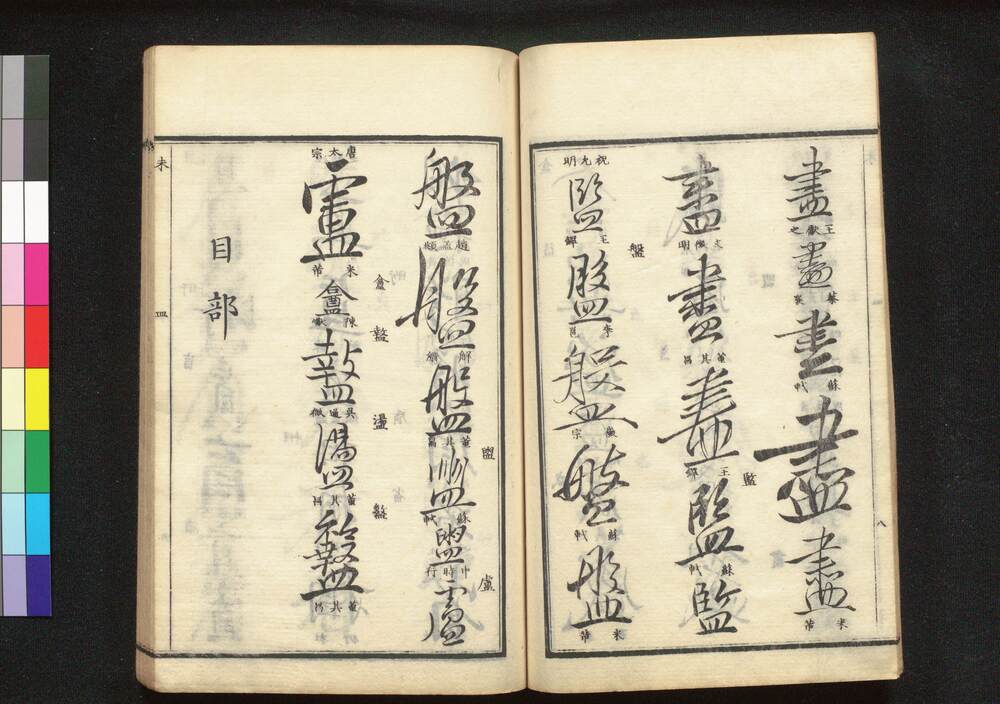 盡
王獻之
盡
蔡襄
盡
蘇軾
盡
盡
米芾
盡
文徵明
盡
董其昌
盡
王鐸
監
監
蘇軾
監
祝允明
監
王鐸
盤
盤
李邕
盤
徽宗
盤
蘇軾
盤
米芾
八
盤
趙孟頫
盤
解縉
盤
董其昌
盟
盟
蘇軾
盟
申時行
盧
盧
唐太宗
盧
米芾
盒
盒
盩
盪
盪
董其昌
董其昌
目部
未
皿